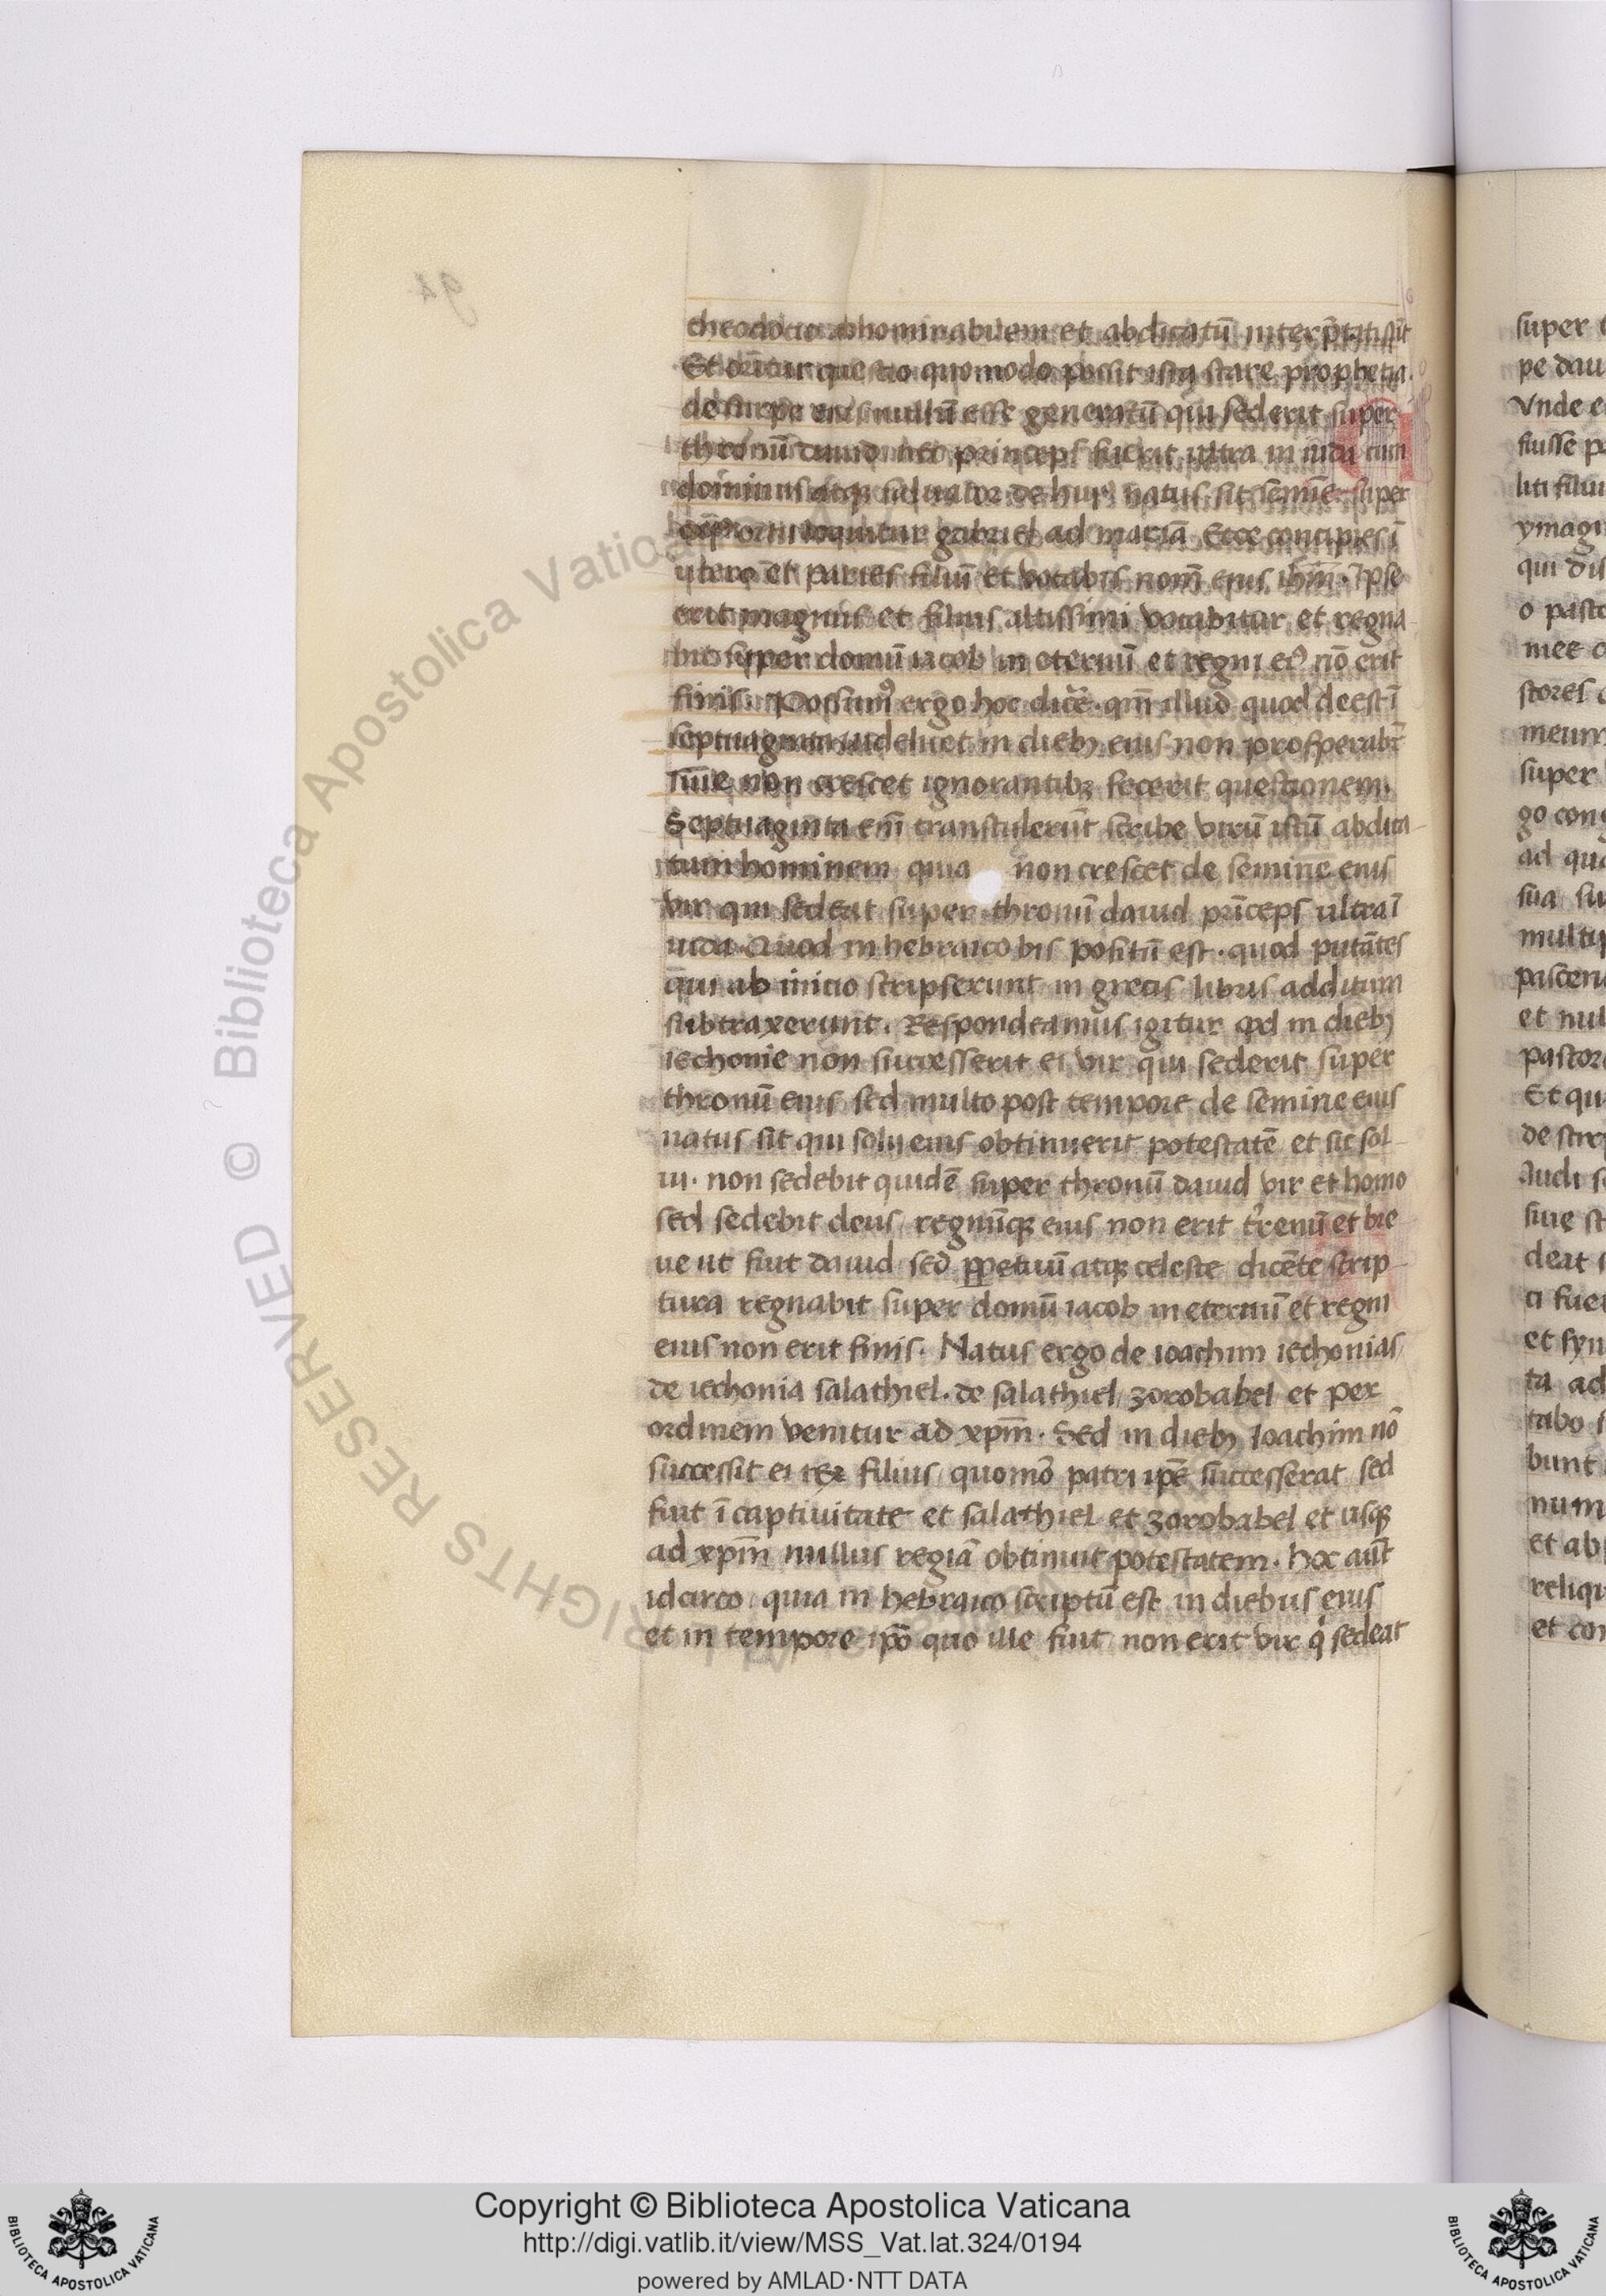 theodotio abhominabilem et abdicatū interp̄tati sūt
Et oritur questio quomodo possit ista stare prophetia
de stirpe eius nullū esse generatū qui sederit super
thronū dauid nec princeps fuerit ultra in iuda cum
dominus atqꝫ saluator de huiꝰ natus sit semīe super
loquitur gabriel ad mariā Ecce concipies ī
utero et paries filiū et vocabis nom̄ eius ihm̄. Ipse
erit magnus et filius altissimi vocabitur et regna-
bit super domū iacob in eternū et regni eiꝰ nō erit
finis. Possumꝰ ergo hoc dicē. qm̄ illud quod deest ī
septuaginta videlicet in diebꝫ eius non prosperabr̄
siue non crescet ignorantibꝫ fecerit questionem.
Septuaginta em̄ transtulerūt scribe virū istū abdica-
tum hominem quia non crescet de semine eius
vir qui sedeat super thronū dauid prīceps ultra ī
iuda. Quod in hebraico bis positū est. quod putātes
qui ab initio scripserunt in grecis libris additum
subtraxerunt. Respondeamus igitur qd̄ in diebꝫ
iechonie non successerit ei vir qui sederit super
thronū eius sed multo post tempore de semine eius
natus sit qui solij eius obtinuerit potestatē et sit sol-
ui. non sedebit quidē super thronū dauid vir et homo
sed sedebit deus regnūqꝫ eius non erit t̓renū et bre
ue ut fuit dauid sed ꝑpetuū atqꝫ celeste dicēte scrip-
tura regnabit super domū iacob in eternū et regni
eius non erit finis. Natus ergo de ioachim iechonias
de iechonia salathiel. de salathiel zorobabel et per
ordinem venitur ad xpm̄. Sed in diebꝫ Ioachim nō
successit ei rex filius quomō patri ipē successerat sed
fuit ī captiuitate et salathiel et zorobabel et usqꝫ
ad xpm̄ nullus regiā obtinuit potestatem. hoc aūt
idcirco quia in hebraico scriptū est in diebus eius
et in tempore ip̄o quo ille fuit non erit vir q̓ sedeat
super
pe dau
Vnde e
fuisse p
liti filiu
ymagi
qui dis
o pasto
mee
stores
meum
super
go cong
ad qua
sua su
multip
pascen
et nul
pastor
Et qu
de stirp
Audi s
siue st
deat s
ci fuer
et syn
ta ad
tabo s
bunt
num
et ab
reliqu
et con
© Biblioteca Apostolica Vaticana
RIGHTS RESERVED
Copyright © Biblioteca Apostolica Vaticana
http://digi.vatlib.it/view/MSS_Vat.lat.324/0194
powered by AMLAD·NTT DATA
BIBLIOTECA APOSTOLICA VATICANA
BIBLIOTECA APOSTOLICA VATICANA